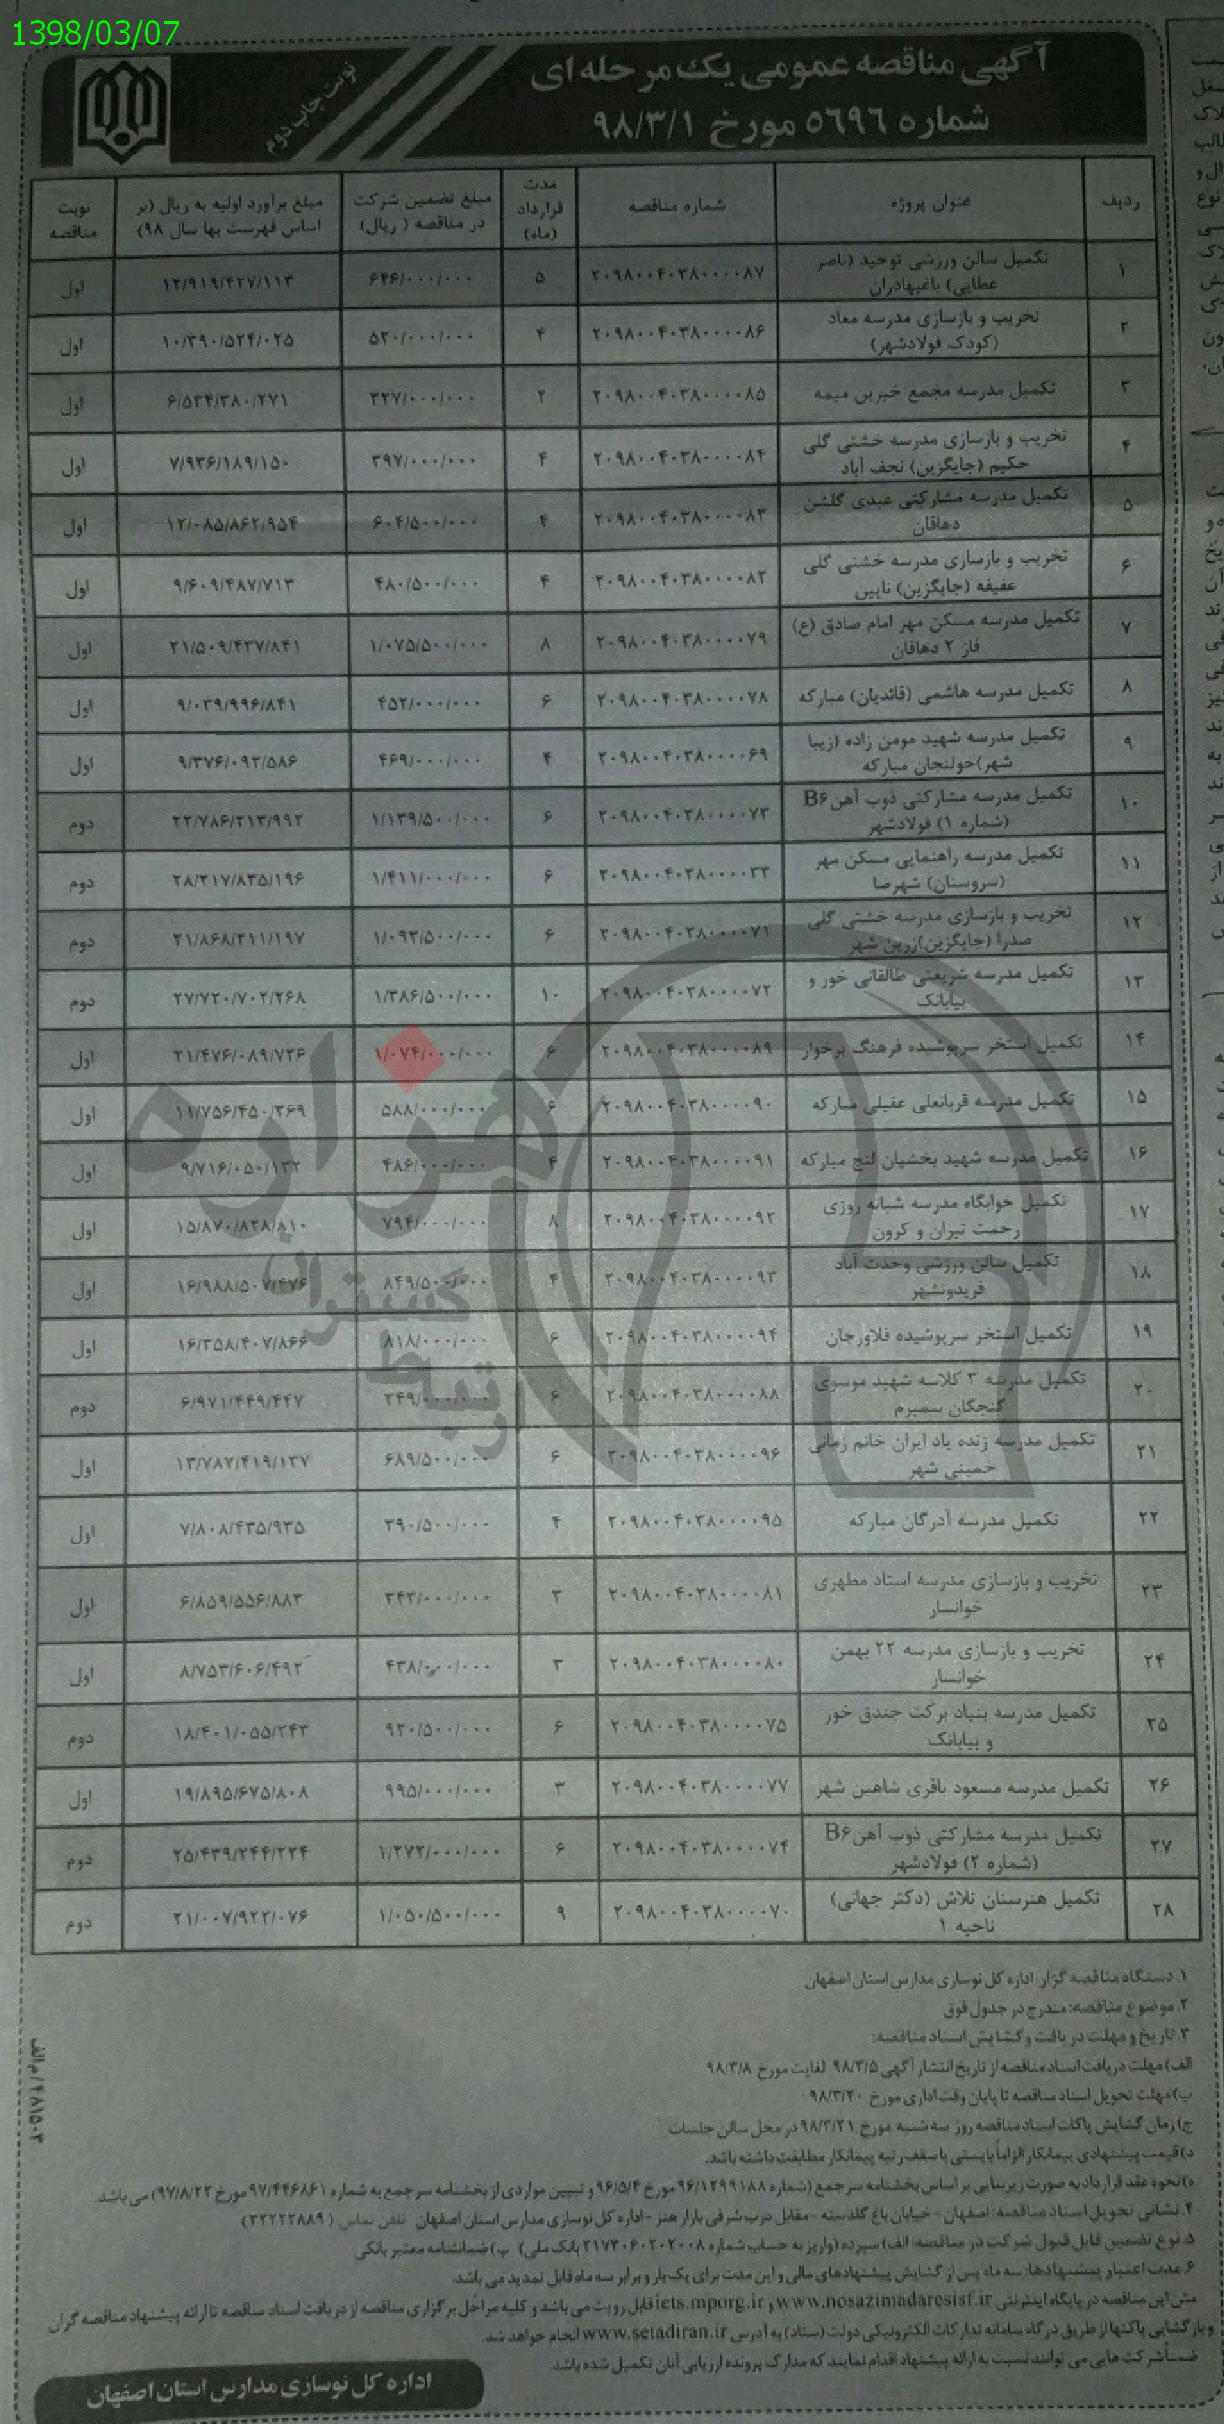 1398/03/07
آگهی مناقصه عمومی یک مرحله ای
شماره ۵۶۹۶ مورخ ۹۸/۳/۱
نوبت چاپ دوم
ردیف | عنوان پروژه | شماره مناقصه | مدت قرارداد (ماه) | مبلغ تضمین شرکت در مناقصه (ریال) | مبلغ برآورد اولیه به ریال (بر اساس فهرست بها سال ۹۸) | نوبت مناقصه
۱ | تکمیل سالن ورزشی توحید (ناصر عطایی) باغبهادران | ۲۰۹۸۰۰۴۰۳۸۰۰۰۰۸۷ | ۵ | ۶۴۶/۰۰۰/۰۰۰ | ۱۲/۹۱۹/۴۲۷/۱۱۳ | اول
۲ | تخریب و بازسازی مدرسه معاد (کودک فولادشهر) | ۲۰۹۸۰۰۴۰۳۸۰۰۰۰۸۶ | ۴ | ۵۲۰/۰۰۰/۰۰۰ | ۱۰/۳۹۰/۵۲۴/۰۲۵ | اول
۳ | تکمیل مدرسه مجمع خیرین میمه | ۲۰۹۸۰۰۴۰۳۸۰۰۰۰۸۵ | ۲ | ۳۲۷/۰۰۰/۰۰۰ | ۶/۵۳۴/۳۸۰/۲۷۱ | اول
۴ | تخریب و بازسازی مدرسه خشتی گلی حکیم (جایگزین) نجف آباد | ۲۰۹۸۰۰۴۰۳۸۰۰۰۰۸۴ | ۴ | ۳۹۷/۰۰۰/۰۰۰ | ۷/۹۳۶/۱۸۹/۱۵۰ | اول
۵ | تکمیل مدرسه مشارکتی عبدی گلشن دهاقان | ۲۰۹۸۰۰۴۰۳۸۰۰۰۰۸۳ | ۴ | ۶۰۴/۵۰۰/۰۰۰ | ۱۲/۰۸۵/۸۶۲/۹۵۴ | اول
۶ | تخریب و بازسازی مدرسه خشتی گلی عفیفه (جایگزین) نایین | ۲۰۹۸۰۰۴۰۳۸۰۰۰۰۸۲ | ۴ | ۴۸۰/۵۰۰/۰۰۰ | ۹/۶۰۹/۴۸۷/۷۱۳ | اول
۷ | تکمیل مدرسه مسکن مهر امام صادق (ع) فاز ۲ دهاقان | ۲۰۹۸۰۰۴۰۳۸۰۰۰۰۷۹ | ۸ | ۱/۰۷۵/۵۰۰/۰۰۰ | ۲۱/۵۰۹/۴۳۷/۸۴۱ | اول
۸ | تکمیل مدرسه هاشمی (قائدیان) مبارکه | ۲۰۹۸۰۰۴۰۳۸۰۰۰۰۷۸ | ۶ | ۴۵۲/۰۰۰/۰۰۰ | ۹/۰۳۹/۹۹۶/۸۴۱ | اول
۹ | تکمیل مدرسه شهید مومن زاده (زیبا شهر)خولنجان مبارکه | ۲۰۹۸۰۰۴۰۳۸۰۰۰۰۶۹ | ۴ | ۴۶۹/۰۰۰/۰۰۰ | ۹/۳۷۶/۰۹۲/۵۸۶ | اول
۱۰ | تکمیل مدرسه مشارکتی ذوب آهن B۶ (شماره ۱) فولادشهر | ۲۰۹۸۰۰۴۰۳۸۰۰۰۰۷۳ | ۶ | ۱/۱۳۹/۵۰۰/۰۰۰ | ۲۲/۷۸۶/۲۱۳/۹۹۲ | دوم
۱۱ | تکمیل مدرسه راهنمایی مسکن مهر (سروستان) شهرضا | ۲۰۹۸۰۰۴۰۳۸۰۰۰۰۳۳ | ۶ | ۱/۴۱۱/۰۰۰/۰۰۰ | ۲۸/۲۱۷/۸۳۵/۱۹۶ | دوم
۱۲ | تخریب و بازسازی مدرسه خشتی گلی صدرا (جایگزین)زرین شهر | ۲۰۹۸۰۰۴۰۳۸۰۰۰۰۷۱ | ۶ | ۱/۰۹۳/۵۰۰/۰۰۰ | ۲۱/۸۶۸/۳۱۱/۱۹۷ | دوم
۱۳ | تکمیل مدرسه شریعتی طالقانی خور و بیابانک | ۲۰۹۸۰۰۴۰۳۸۰۰۰۰۷۲ | ۱۰ | ۱/۳۸۶/۵۰۰/۰۰۰ | ۲۷/۷۲۰/۷۰۲/۲۶۸ | دوم
۱۴ | تکمیل استخر سرپوشیده فرهنگ برخوار | ۲۰۹۸۰۰۴۰۳۸۰۰۰۰۸۹ | ۶ | ۱/۰۷۴/۰۰۰/۰۰۰ | ۲۱/۴۷۶/۰۸۹/۷۳۶ | اول
۱۵ | تکمیل مدرسه قربانعلی عقیلی مبارکه | ۲۰۹۸۰۰۴۰۳۸۰۰۰۰۹۰ | ۶ | ۵۸۸/۰۰۰/۰۰۰ | ۱۱/۷۵۶/۴۵۰/۳۶۹ | اول
۱۶ | تکمیل مدرسه شهید بخشیان لنج مبارکه | ۲۰۹۸۰۰۴۰۳۸۰۰۰۰۹۱ | ۴ | ۴۸۶/۰۰۰/۰۰۰ | ۹/۷۱۶/۰۵۰/۱۳۲ | اول
۱۷ | تکمیل خوابگاه مدرسه شبانه روزی رحمت تیران و کرون | ۲۰۹۸۰۰۴۰۳۸۰۰۰۰۹۲ | ۸ | ۷۹۴/۰۰۰/۰۰۰ | ۱۵/۸۷۰/۸۲۸/۸۱۰ | اول
۱۸ | تکمیل سالن ورزشی وحدت آباد فریدونشهر | ۲۰۹۸۰۰۴۰۳۸۰۰۰۰۹۳ | ۴ | ۸۴۹/۵۰۰/۰۰۰ | ۱۶/۹۸۸/۵۰۷/۴۷۶ | اول
۱۹ | تکمیل استخر سرپوشیده فلاورجان | ۲۰۹۸۰۰۴۰۳۸۰۰۰۰۹۴ | ۶ | ۸۱۸/۰۰۰/۰۰۰ | ۱۶/۳۵۸/۴۰۷/۸۶۶ | اول
۲۰ | تکمیل مدرسه ۳ کلاسه شهید موسوی گنجگان سمیرم | ۲۰۹۸۰۰۴۰۳۸۰۰۰۰۸۸ | ۶ | ۳۴۹/۰۰۰/۰۰۰ | ۶/۹۷۱/۴۴۹/۴۴۷ | دوم
۲۱ | تکمیل مدرسه زنده یاد ایران خانم زمانی خمینی شهر | ۲۰۹۸۰۰۴۰۳۸۰۰۰۰۹۶ | ۶ | ۶۸۹/۵۰۰/۰۰۰ | ۱۳/۷۸۲/۴۱۹/۱۳۷ | اول
۲۲ | تکمیل مدرسه آدرگان مبارکه | ۲۰۹۸۰۰۴۰۳۸۰۰۰۰۹۵ | ۴ | ۳۹۰/۵۰۰/۰۰۰ | ۷/۸۰۸/۴۳۵/۹۳۵ | اول
۲۳ | تخریب و بازسازی مدرسه استاد مطهری خوانسار | ۲۰۹۸۰۰۴۰۳۸۰۰۰۰۸۱ | ۳ | ۳۴۳/۰۰۰/۰۰۰ | ۶/۸۵۹/۵۵۶/۸۸۳ | اول
۲۴ | تخریب و بازسازی مدرسه ۲۲ بهمن خوانسار | ۲۰۹۸۰۰۴۰۳۸۰۰۰۰۸۰ | ۳ | ۴۳۸/۰۰۰/۰۰۰ | ۸/۷۵۳/۶۰۶/۴۹۲ | اول
۲۵ | تکمیل مدرسه بنیاد برکت جندق خور و بیابانک | ۲۰۹۸۰۰۴۰۳۸۰۰۰۰۷۵ | ۶ | ۹۲۰/۵۰۰/۰۰۰ | ۱۸/۴۰۱/۰۵۵/۲۴۳ | دوم
۲۶ | تکمیل مدرسه مسعود باقری شاهین شهر | ۲۰۹۸۰۰۴۰۳۸۰۰۰۰۷۷ | ۳ | ۹۹۵/۰۰۰/۰۰۰ | ۱۹/۸۹۵/۶۷۵/۸۰۸ | اول
۲۷ | تکمیل مدرسه مشارکتی ذوب آهن B۶ (شماره ۲) فولادشهر | ۲۰۹۸۰۰۴۰۳۸۰۰۰۰۷۴ | ۶ | ۱/۲۷۲/۰۰۰/۰۰۰ | ۲۵/۴۳۹/۲۴۴/۲۳۴ | دوم
۲۸ | تکمیل هنرستان تلاش (دکتر جهانی) ناحیه ۱ | ۲۰۹۸۰۰۴۰۳۸۰۰۰۰۷۰ | ۹ | ۱/۰۵۰/۵۰۰/۰۰۰ | ۲۱/۰۰۷/۹۲۲/۰۷۶ | دوم
۱. دستگاه مناقصه گزار: اداره کل نوسازی مدارس استان اصفهان
۲. موضوع مناقصه: مندرج در جدول فوق
۳. تاریخ و مهلت دریافت و گشایش اسناد مناقصه:
الف) مهلت دریافت اسناد مناقصه از تاریخ انتشار آگهی ۹۸/۳/۵ لغایت مورخ ۹۸/۳/۸
ب) مهلت تحویل اسناد مناقصه تا پایان وقت اداری مورخ ۹۸/۳/۲۰
ج) زمان گشایش پاکات اسناد مناقصه روز سه شنبه مورخ ۹۸/۳/۲۱ در محل سالن جلسات
د) قیمت پیشنهادی پیمانکار الزاماً بایستی با سقف رتبه پیمانکار مطابقت داشته باشد.
ه) نحوه عقد قرارداد به صورت زیربنایی بر اساس بخشنامه سرجمع (شماره ۹۶/۱۲۹۹۱۸۸ مورخ ۹۶/۵/۴ و تبیین مواردی از بخشنامه سرجمع به شماره ۹۷/۴۴۶۸۶۱ مورخ ۹۷/۸/۲۳) می باشد.
۴. نشانی تحویل اسناد مناقصه: اصفهان - خیابان باغ گلدسته - مقابل درب شرقی بازار هنر - اداره کل نوسازی مدارس استان اصفهان تلفن تماس (۳۲۲۲۲۸۸۹)
۵. نوع تضمین قابل قبول شرکت در مناقصه: الف) سپرده (واریز به حساب شماره ۲۱۷۳۰۶۰۲۰۲۰۰۸ بانک ملی) ب) ضمانتنامه معتبر بانکی
۶. مدت اعتبار پیشنهادها: سه ماه پس از گشایش پیشنهادهای مالی و این مدت برای یک بار و برابر سه ماه قابل تمدید می باشد.
متن این مناقصه در پایگاه اینترنتی www.nosazimadaresisf.ir و iets.mporg.ir قابل رویت می باشد و کلیه مراحل برگزاری مناقصه از دریافت اسناد مناقصه تا ارائه پیشنهاد مناقصه گران
و بازگشایی پاکتها از طریق درگاه سامانه تدارکات الکترونیکی دولت (ستاد) به آدرس www.setadiran.ir انجام خواهد شد.
ضمناً شرکت هایی می توانند نسبت به ارائه پیشنهاد اقدام نمایند که مدارک پرونده ارزیابی آنان تکمیل شده باشد.
اداره کل نوسازی مدارس استان اصفهان
۴۸۱۵۰۳/م الف
هزاره
گستران
ارتباط